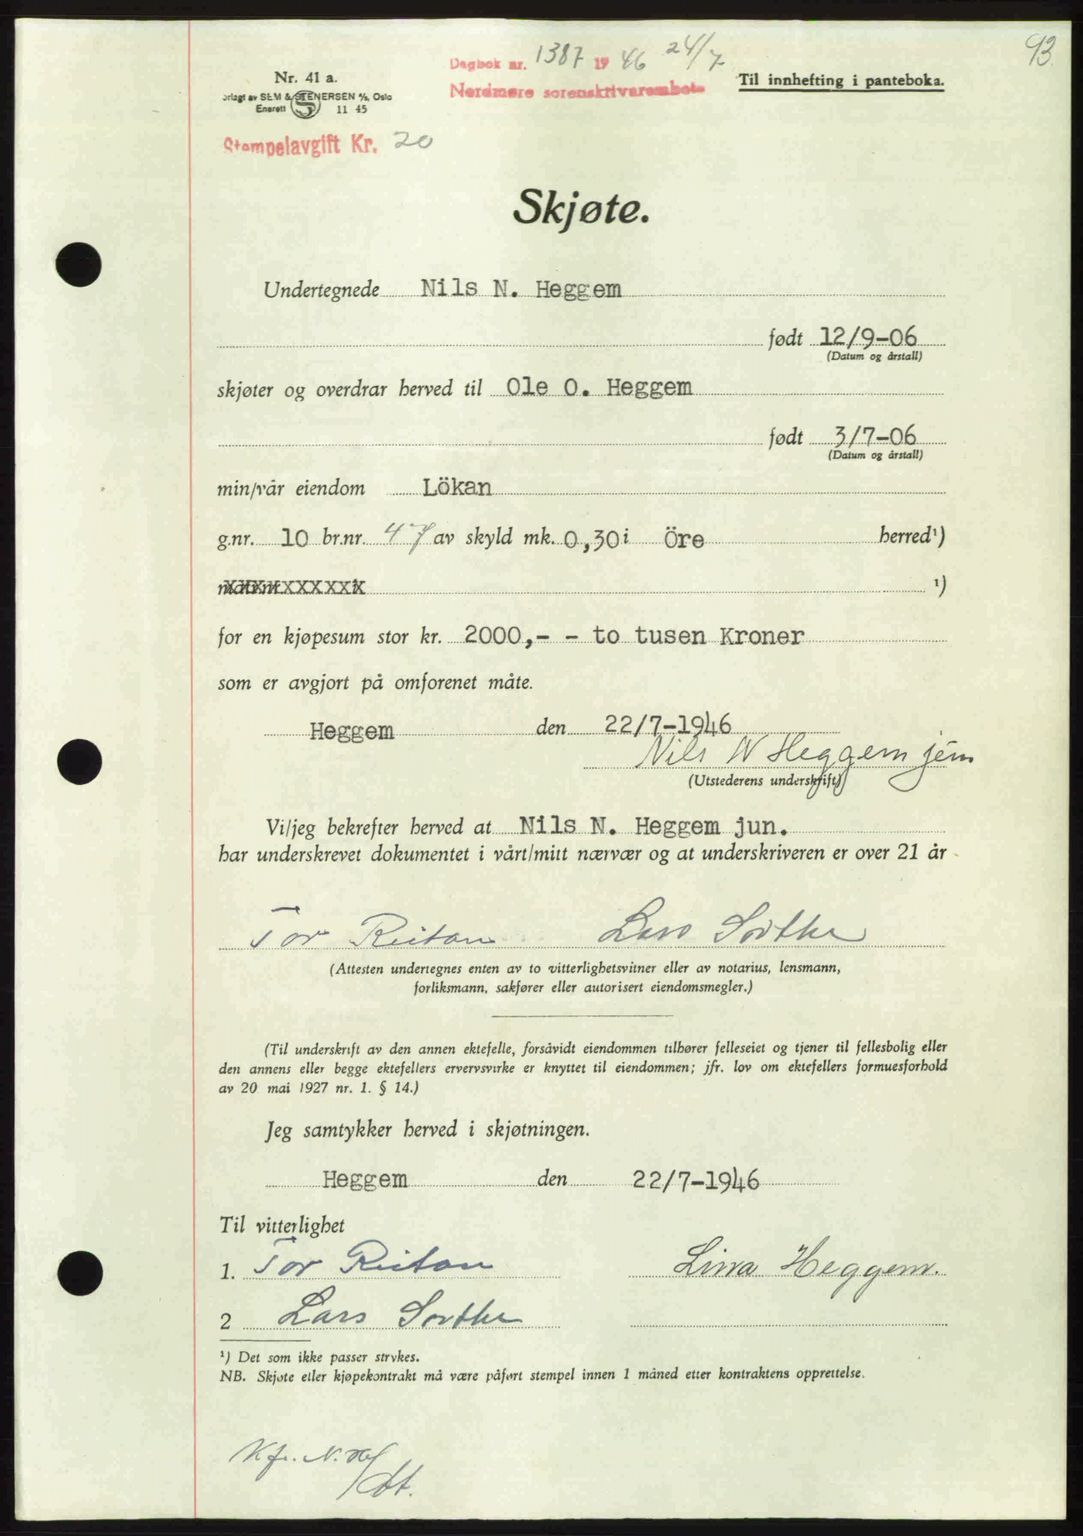 93.
Dagbok nr. 1387 1946 24/7
Nordmøre sorenskriverembete
Nr. 41 a.
Til innhefting i panteboka.
orlagt av SEM & STENERSEN A/S, Oslo
Enerett S 11 45
Stempelavgift Kr. 20
Skjøte.
Undertegnede Nils N. Heggem
født 12/9-06
(Datum og årstall)
skjøter og overdrar herved til Ole O. Heggem
født 3/7-06
(Datum og årstall)
min/vår eiendom Lökan
g.nr. 10 br.nr. 47 av skyld mk. 0,30 i Öre herred¹)
¹)
for en kjøpesum stor kr. 2000,- - to tusen Kroner
som er avgjort på omforenet måte.
Heggem den 22/7-1946
Nils N Heggem jun
(Utstederens underskrift)
Vi/jeg bekrefter herved at Nils N. Heggem jun.
har underskrevet dokumentet i vårt/mitt nærvær og at underskriveren er over 21 år
Tor Reitan Lars
(Attesten undertegnes enten av to vitterlighetsvitner eller av notarius, lensmann,
forliksmann, sakfører eller autorisert eiendomsmegler.)
(Til underskrift av den annen ektefelle, forsåvidt eiendommen tilhører felleseiet og tjener til fellesbolig eller
den annens eller begge ektefellers ervervsvirke er knyttet til eiendommen; jfr. lov om ektefellers formuesforhold
av 20 mai 1927 nr. 1. § 14.)
Jeg samtykker herved i skjøtningen.
Heggem den 22/7-1946
Til vitterlighet
1. Tor Reitan Lina Heggem.
2 Lars
¹) Det som ikke passer strykes.
NB. Skjøte eller kjøpekontrakt må være påført stempel innen 1 måned etter kontraktens opprettelse.